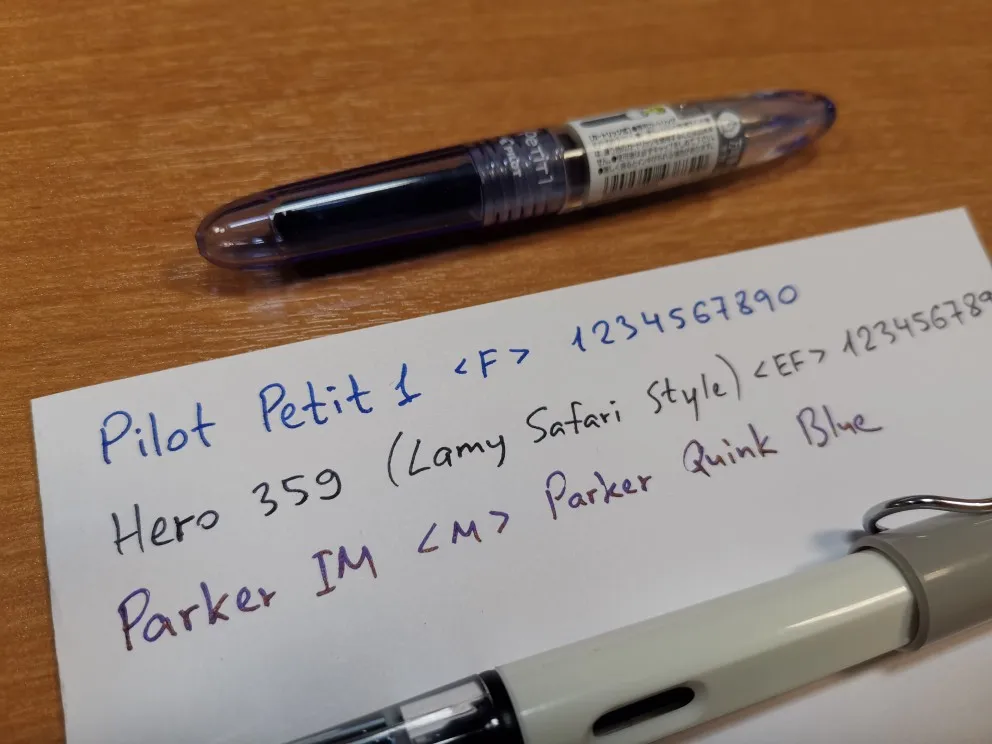 Petit1
PILOT
Pilot Petit 1 <F> 1234567890
Hero 359 (Lamy Safari Style) <EF> 123456789
Parker IM <M> Parker Quink Blue